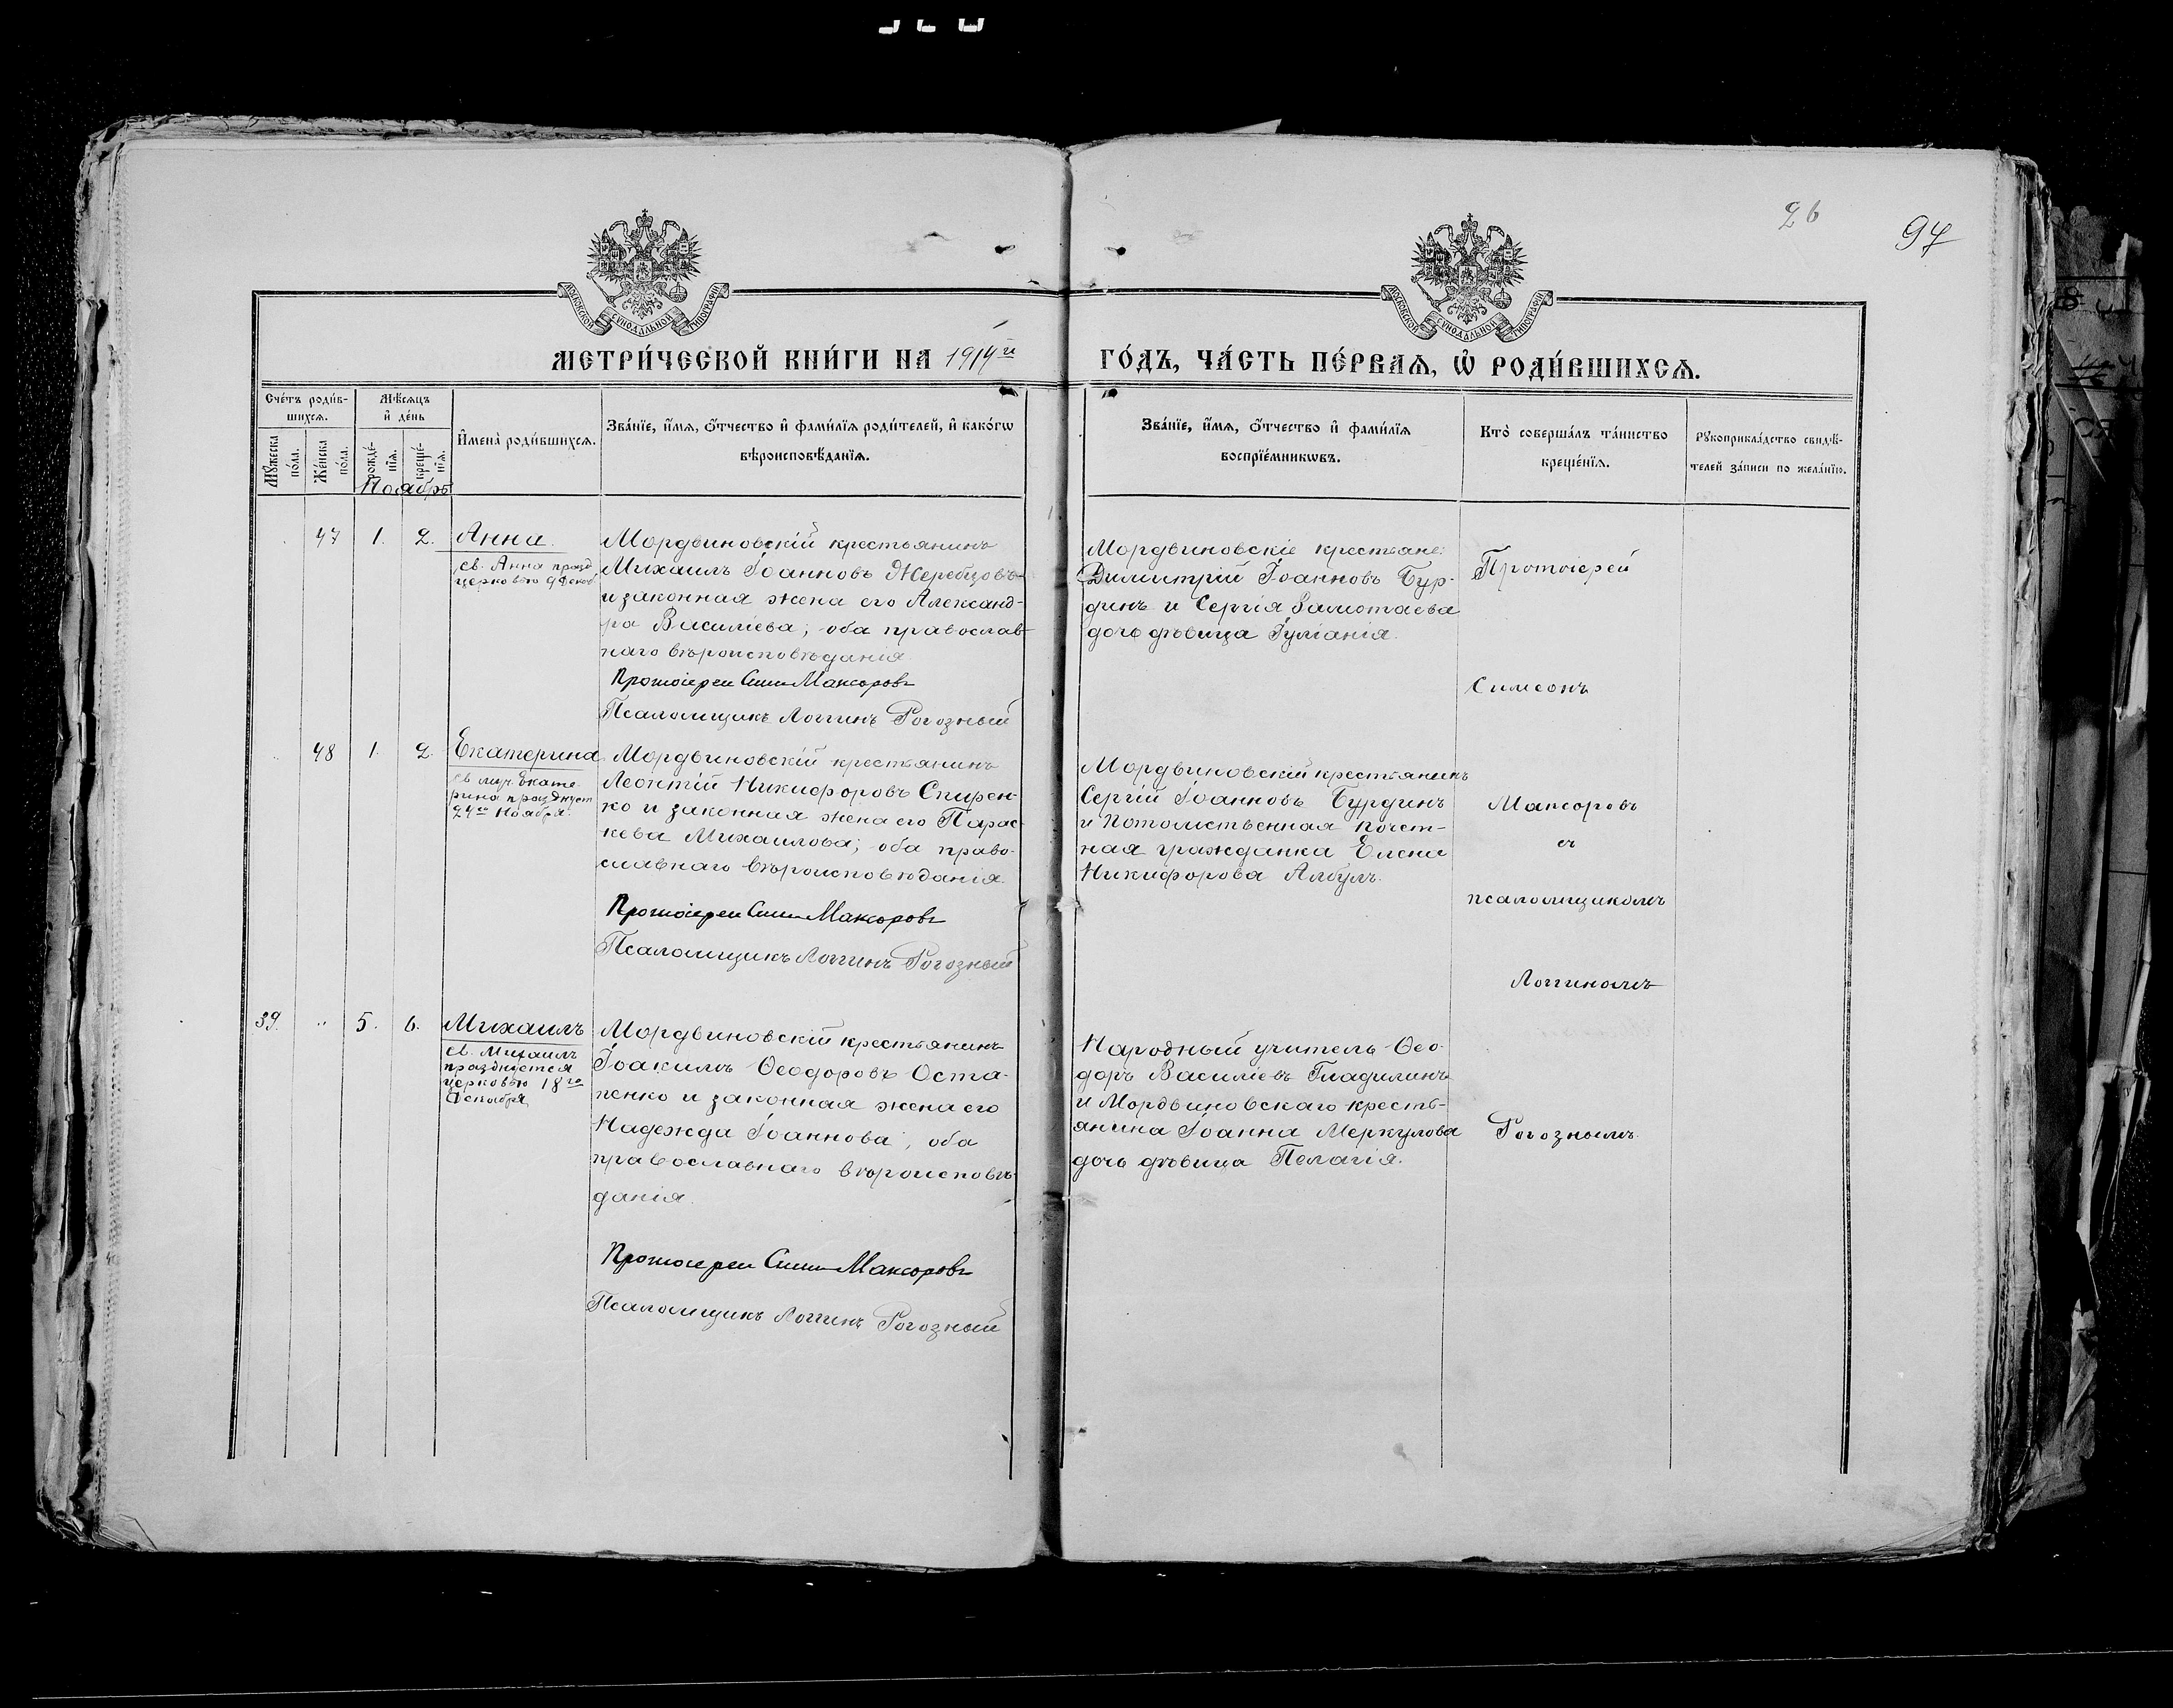 26
97
МОСКОВСКОЙ СѴНОДАЛЬНОЙ ТИПОГРАФІИ
МОСКОВСКОЙ СѴНОДАЛЬНОЙ ТИПОГРАФІИ
МЕТРИ́ЧЕСКОЙ КНИ́ГИ НА 1914й ГО́ДЪ, ЧА́СТЬ ПЕ́РВАѦ, Ѡ҆ РОДИ́ВШИХСѦ.
Сче́тъ роди́в-
шихсѧ.
Мѣ́сѧцъ
и҆ де́нь
Мꙋ́жеска
по́ла.
Же́нска
по́ла.
рожде́-
нїѧ.
креще́-
нїѧ.
И҆мена̀ роди́вшихсѧ.
Зва́нїе, и҆́мѧ, ѻ҆́тчество и҆ фами́лїѧ роди́телей, и҆ како́гѡ
вѣроисповѣ́данїѧ.
Зва́нїе, и҆́мѧ, ѻ҆́тчество и҆ фами́лїѧ
воспрїе́мникѡвъ.
Кто̀ соверша́лъ та́инство
креще́нїѧ.
Рꙋкоприкла́дство свидѣ́-
телей за́писи по жела́нїю.
Ноябрь
47 1. 2. Анна.
св. Анна празд.
церковью 9 Декаб.
Мордвиновскій крестьянинъ
Михаилъ Іоанновъ Жеребцовъ
и законная жена его Александ-
ра Василіева; оба православ-
наго вѣроисповѣданія
Протоіерей Сим Максоровъ
Псаломщикъ Логгинъ Рогозный
Мордвиновскіе крестьяне:
Димитрій Іоанновъ Бур-
динъ и Сергія Замотаева
дочь дѣвица Іуліанія.
Протоіерей
Симеонъ
48 1. 2. Екатерина
св муч. Екате-
рина празднует
24го Ноября.
Мордвиновскій крестьянинъ
Леонтій Никифоровъ Спирен-
ко и законная жена его Парас-
кева Михаилова; оба право-
славнаго вѣроисповѣданія.
Протоіерей Сим Максоровъ
Псаломщикъ Логгинъ Рогозный
Мордвиновскій крестьянинъ
Сергій Іоанновъ Бурдинъ
и потомственная почет-
ная гражданка Елена
Никифорова Албулъ.
Максоровъ
съ
псаломщикомъ
Логгиномъ
39. 5. 6. Михаилъ
св. Михаилъ
празднуется
церковью 18го
Декабря
Мордвиновскій крестьянинъ
Іоакимъ Ѳеодоровъ Оста-
пенко и законная жена его
Надежда Іоаннова; оба
православнаго вѣроисповѣ-
данія.
Протоіерей Сим Максоровъ
Псаломщикъ Логгинъ Рогозный
Народный учитель Ѳео-
доръ Василіевъ Гладилинъ
и Мордвиновскаго кресть-
янина Іоанна Меркулова
дочь дѣвица Пелагія.
Рогознымъ.